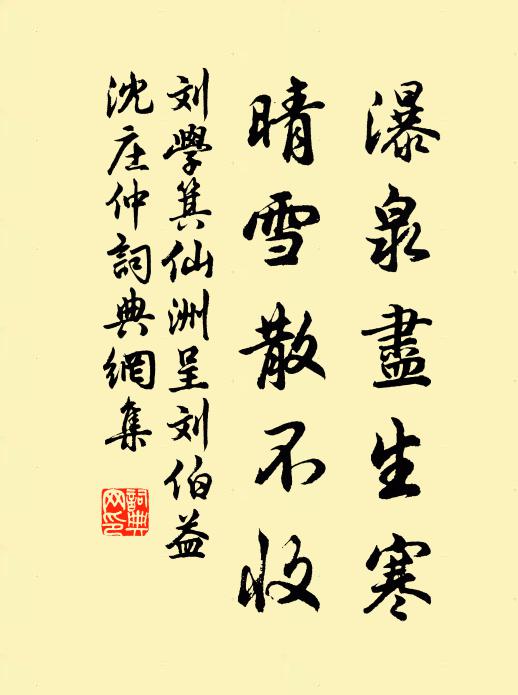 瀑泉盡生寒
晴雪散不收
刘學箕仙洲呈刘伯益
沈庄仲詞典網集
詞典网印